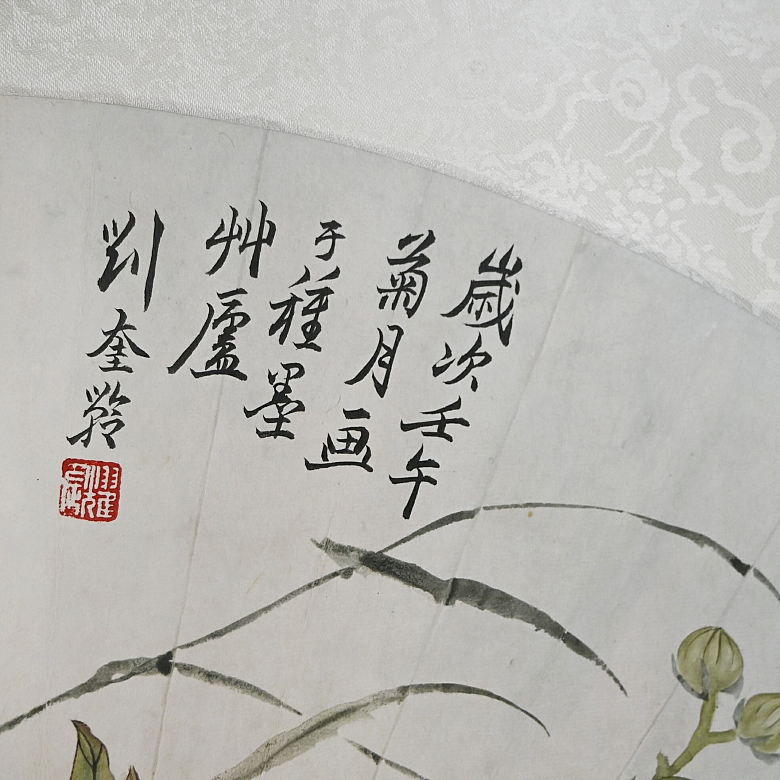 歲次壬午
菊月画
于種墨
艸廬
劉奎齡
耀辰